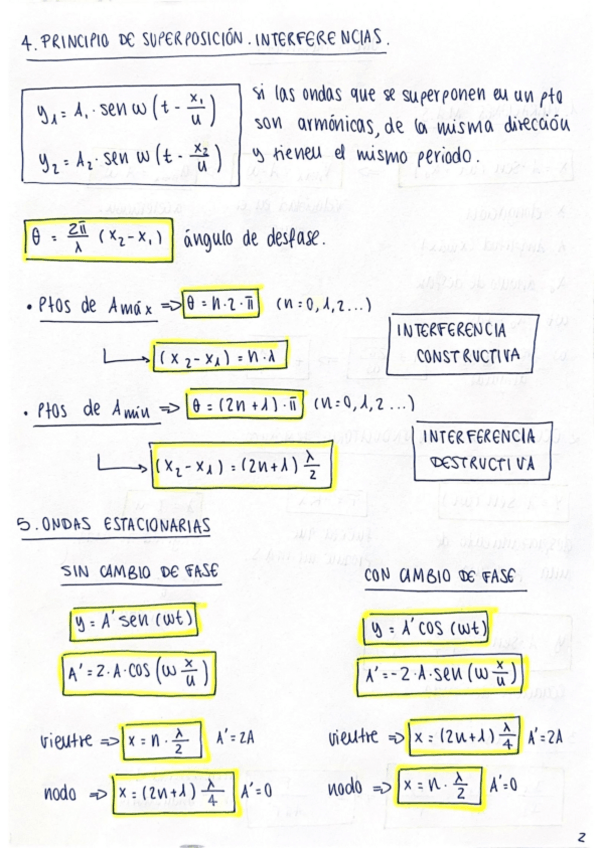 4. PRINCIPIO DE SUPERPOSICIÓN. INTERFERENCIAS.
y₁ = A₁ · sen ω (t - x₁/u)
y₂ = A₂ · sen ω (t - x₂/u)
si las ondas que se superponen en un pto
son armónicas, de la misma dirección
y tienen el mismo periodo.
θ = 2π/λ (x₂-x₁) ángulo de desfase.
• Ptos de Amáx => θ = n·2·π (n=0,1,2...)
(x₂-x₁) = n·λ
INTERFERENCIA
CONSTRUCTIVA
• Ptos de Amin => θ = (2n+1)·π (n=0,1,2...)
(x₂-x₁) = (2n+1) λ/2
INTERFERENCIA
DESTRUCTIVA
5. ONDAS ESTACIONARIAS
SIN CAMBIO DE FASE
y = A' sen (ωt)
A' = 2·A·cos (ω x/u)
vientre => x = n · λ/2 A'=2A
nodo => x = (2n+1) λ/4 A'=0
CON CAMBIO DE FASE
y = A' cos (ωt)
A' = -2·A·sen (ω x/u)
vientre => x = (2n+1) λ/4 A'=2A
nodo => x = n · λ/2 A'=0
2